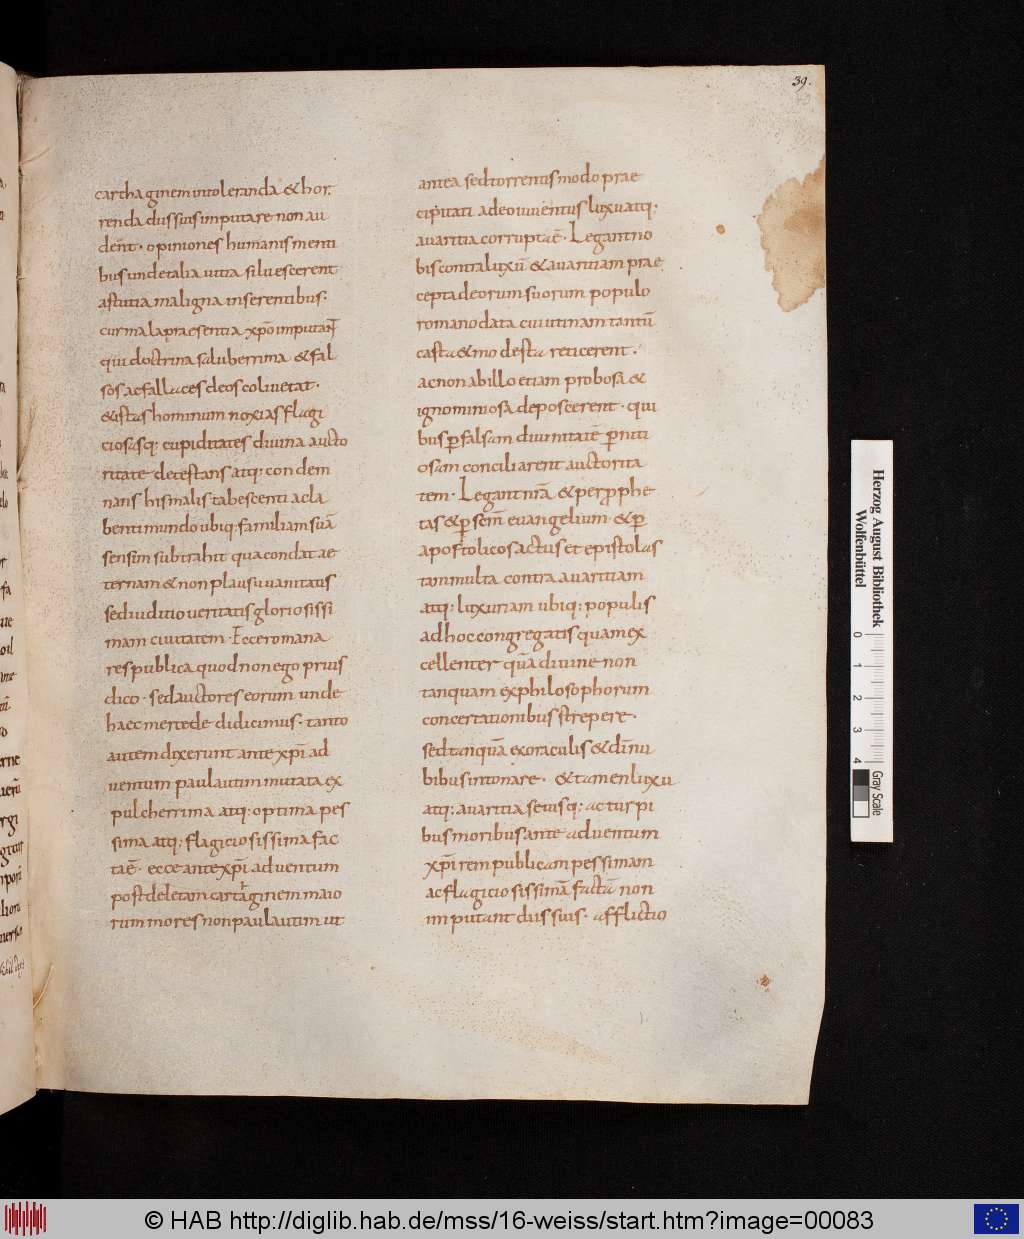 39.
cartha ginem intoleranda & hor
renda diis suis imputare non au
dent · opiniones humanis menti
bus unde talia uitia siluescerent
astutia maligna inserentibus·
cur mala praesentia xp̄o imputant
qui doctrina saluberrima & fal
sos ac fallaces deos coli uetat·
& istas hominum noxias flagi
ciosasq; cupiditates diuina aucto
ritate detestans atq; condem
nans his malis tabescenti ac la
benti mundo ubiq; familiam suā
sensim subtrahit qua condat ae
ternam & non plausu uanitatis
sed iuditio ueritatis gloriosissi
mam ciuitatem · Ecce romana
respublica quod non ego prius
dico · sed auctores eorum unde
haec mercede didicimus · tanto
autem dixerunt ante xp̄i ad
uentum paulatim mutata ex
pulcherrima atq; optima pes
sima atq; flagiciosissima fac
taē · ecce ante xp̄i aduentum
post deletam cartaginem maio
rum mores non paulatim ut
antea sed torrentis modo prae
cipitati adeo iuuentus luxu atq;
auaritia corrupta ē · Legant no
bis contra luxū & auaritiam prae
cepta deorum suorum populo
romano data cui utinam tantū
casta & modesta reticerent ·
ac non ab illo etiam probosa &
ignominiosa deposcerent · qui
bus p̄ falsam diuinitatē p̄niti
osam conciliarent auctorita
tem · Legant nrā & per prophe
tas & p̄ scm̄ euangelium & p̄
apostolicos actus et epistolas
tam multa contra auaritiam
atq; luxuriam ubiq; populis
ad hoc congregatis quam ex
cellenter quā diuine non
tanquam ex philosophorum
concertationibus strepere ·
sed tanquā ex oraculis & dī nu
bibus intonare · & tamen luxu
atq; auaritia seuisq; ac turpi
bus moribus ante aduentum
xp̄i rem publicam pessimam
ac flagiciosissimā factā non
imputant diis suis · afflictio
Herzog August Bibliothek
Wolfenbüttel
0 1 2 3 4
Gray Scale
© HAB http://diglib.hab.de/mss/16-weiss/start.htm?image=00083